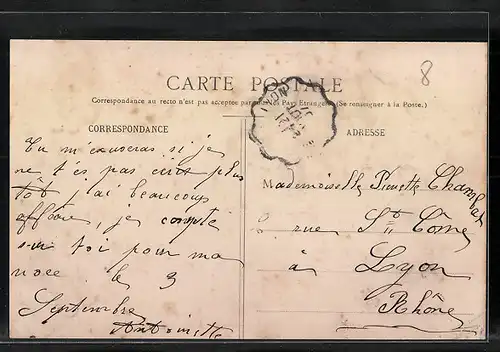 8
CARTE POSTALE
Correspondance au recto n'est pas acceptée par tous les Pays Etrangers (Se renseigner à la Poste.)
CORRESPONDANCE
ADRESSE
LYON
Tu m'excuseras si je
ne t'és pas écris plus
tot j'ai beaucoup
affaire, je compte
sur toi pour ma
noce. le 3
Septembre
Antoinette
Mademoiselle Pierrette
rue St Come
à
Lyon
Rhône